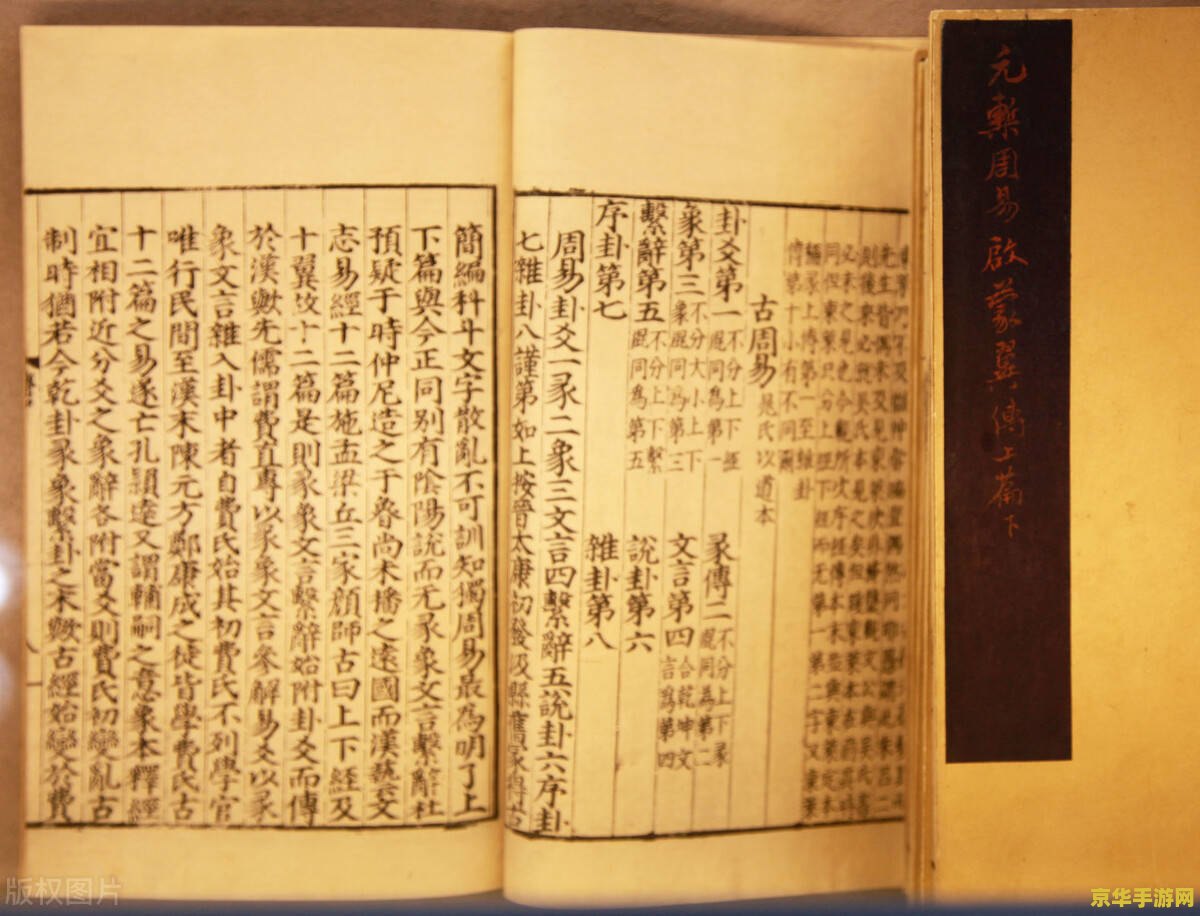 元槧周易啟蒙翼傳上篇下
古周易 晁氏以道本
卦爻第一 不分上下經混同為第一
彖傳二 不分上下彖混同為第二
象第三 不分大小上下象混同為第三
文言第四 合乾坤文言為第四
繫辭第五 不分上下繫混同為第五
說卦第六
序卦第七
雜卦第八
周易卦爻一彖二象三文言四繫辭五說卦六序卦
七雜卦八謹第如上按晉太康初發汲縣舊冢得古
簡編科斗文字散亂不可訓知獨周易最為明了上
下篇與今正同別有陰陽說而无彖象文言繫辭杜
預疑于時仲尼造之于魯尚未播之遠國而漢藝文
志易經十二篇施孟梁丘三家顏師古曰上下經及
十翼故十二篇是則彖象文言繫辭始附卦爻而傳
於漢歟先儒謂費直專以彖象文言參解易爻以彖
象文言雜入卦中者自費氏始其初費氏不列學官
唯行民間至漢末陳元方鄭康成之徒皆學費氏古
十二篇之易遂亡孔穎達又謂輔嗣之意象本釋經
宜相附近分爻之象辭各附當爻則費氏初變亂古
制時猶若今乾卦彖象繫卦之末歟古經始變於費
版权图片
京华手游网